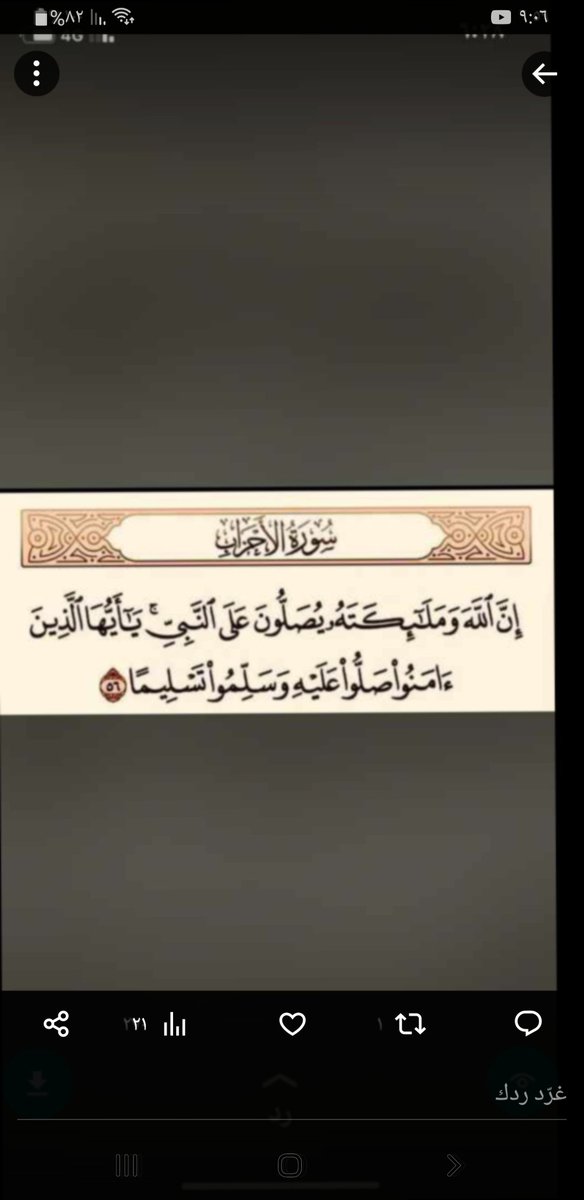 ٩:٠٦
%٨٢
4G
سُورَةُ الأَحْزَابِ
إِنَّ ٱللَّهَ وَمَلَـٰٓئِكَتَهُۥ يُصَلُّونَ عَلَى ٱلنَّبِيِّۚ يَـٰٓأَيُّهَا ٱلَّذِينَ
ءَامَنُوا۟ صَلُّوا۟ عَلَيْهِ وَسَلِّمُوا۟ تَسْلِيمًا ٥٦
١
٢٢١
غرّد ردك
رد